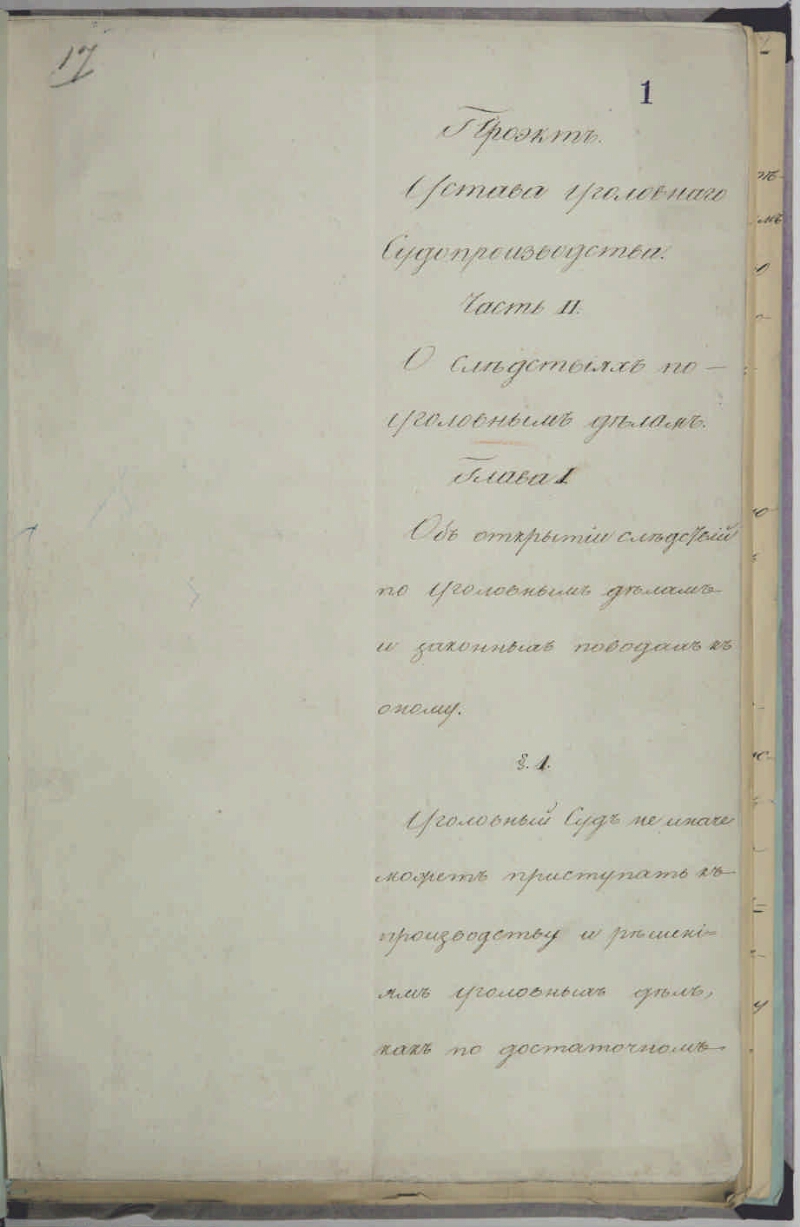 17
1
Проэктъ.
Устава уголовнаго
Судопроизводства.
Часть II.
О слѣдствіяхъ по
уголовнымъ дѣламъ.
Глава I
Объ открытіи слѣдствій
по уголовнымъ дѣламъ
и законныхъ поводахъ къ
оному.
§. 1.
Уголовный Судъ не иначе
можетъ приступать къ
производству и рѣшені=
ямъ уголовныхъ дѣлъ,
какъ по достаточномъ